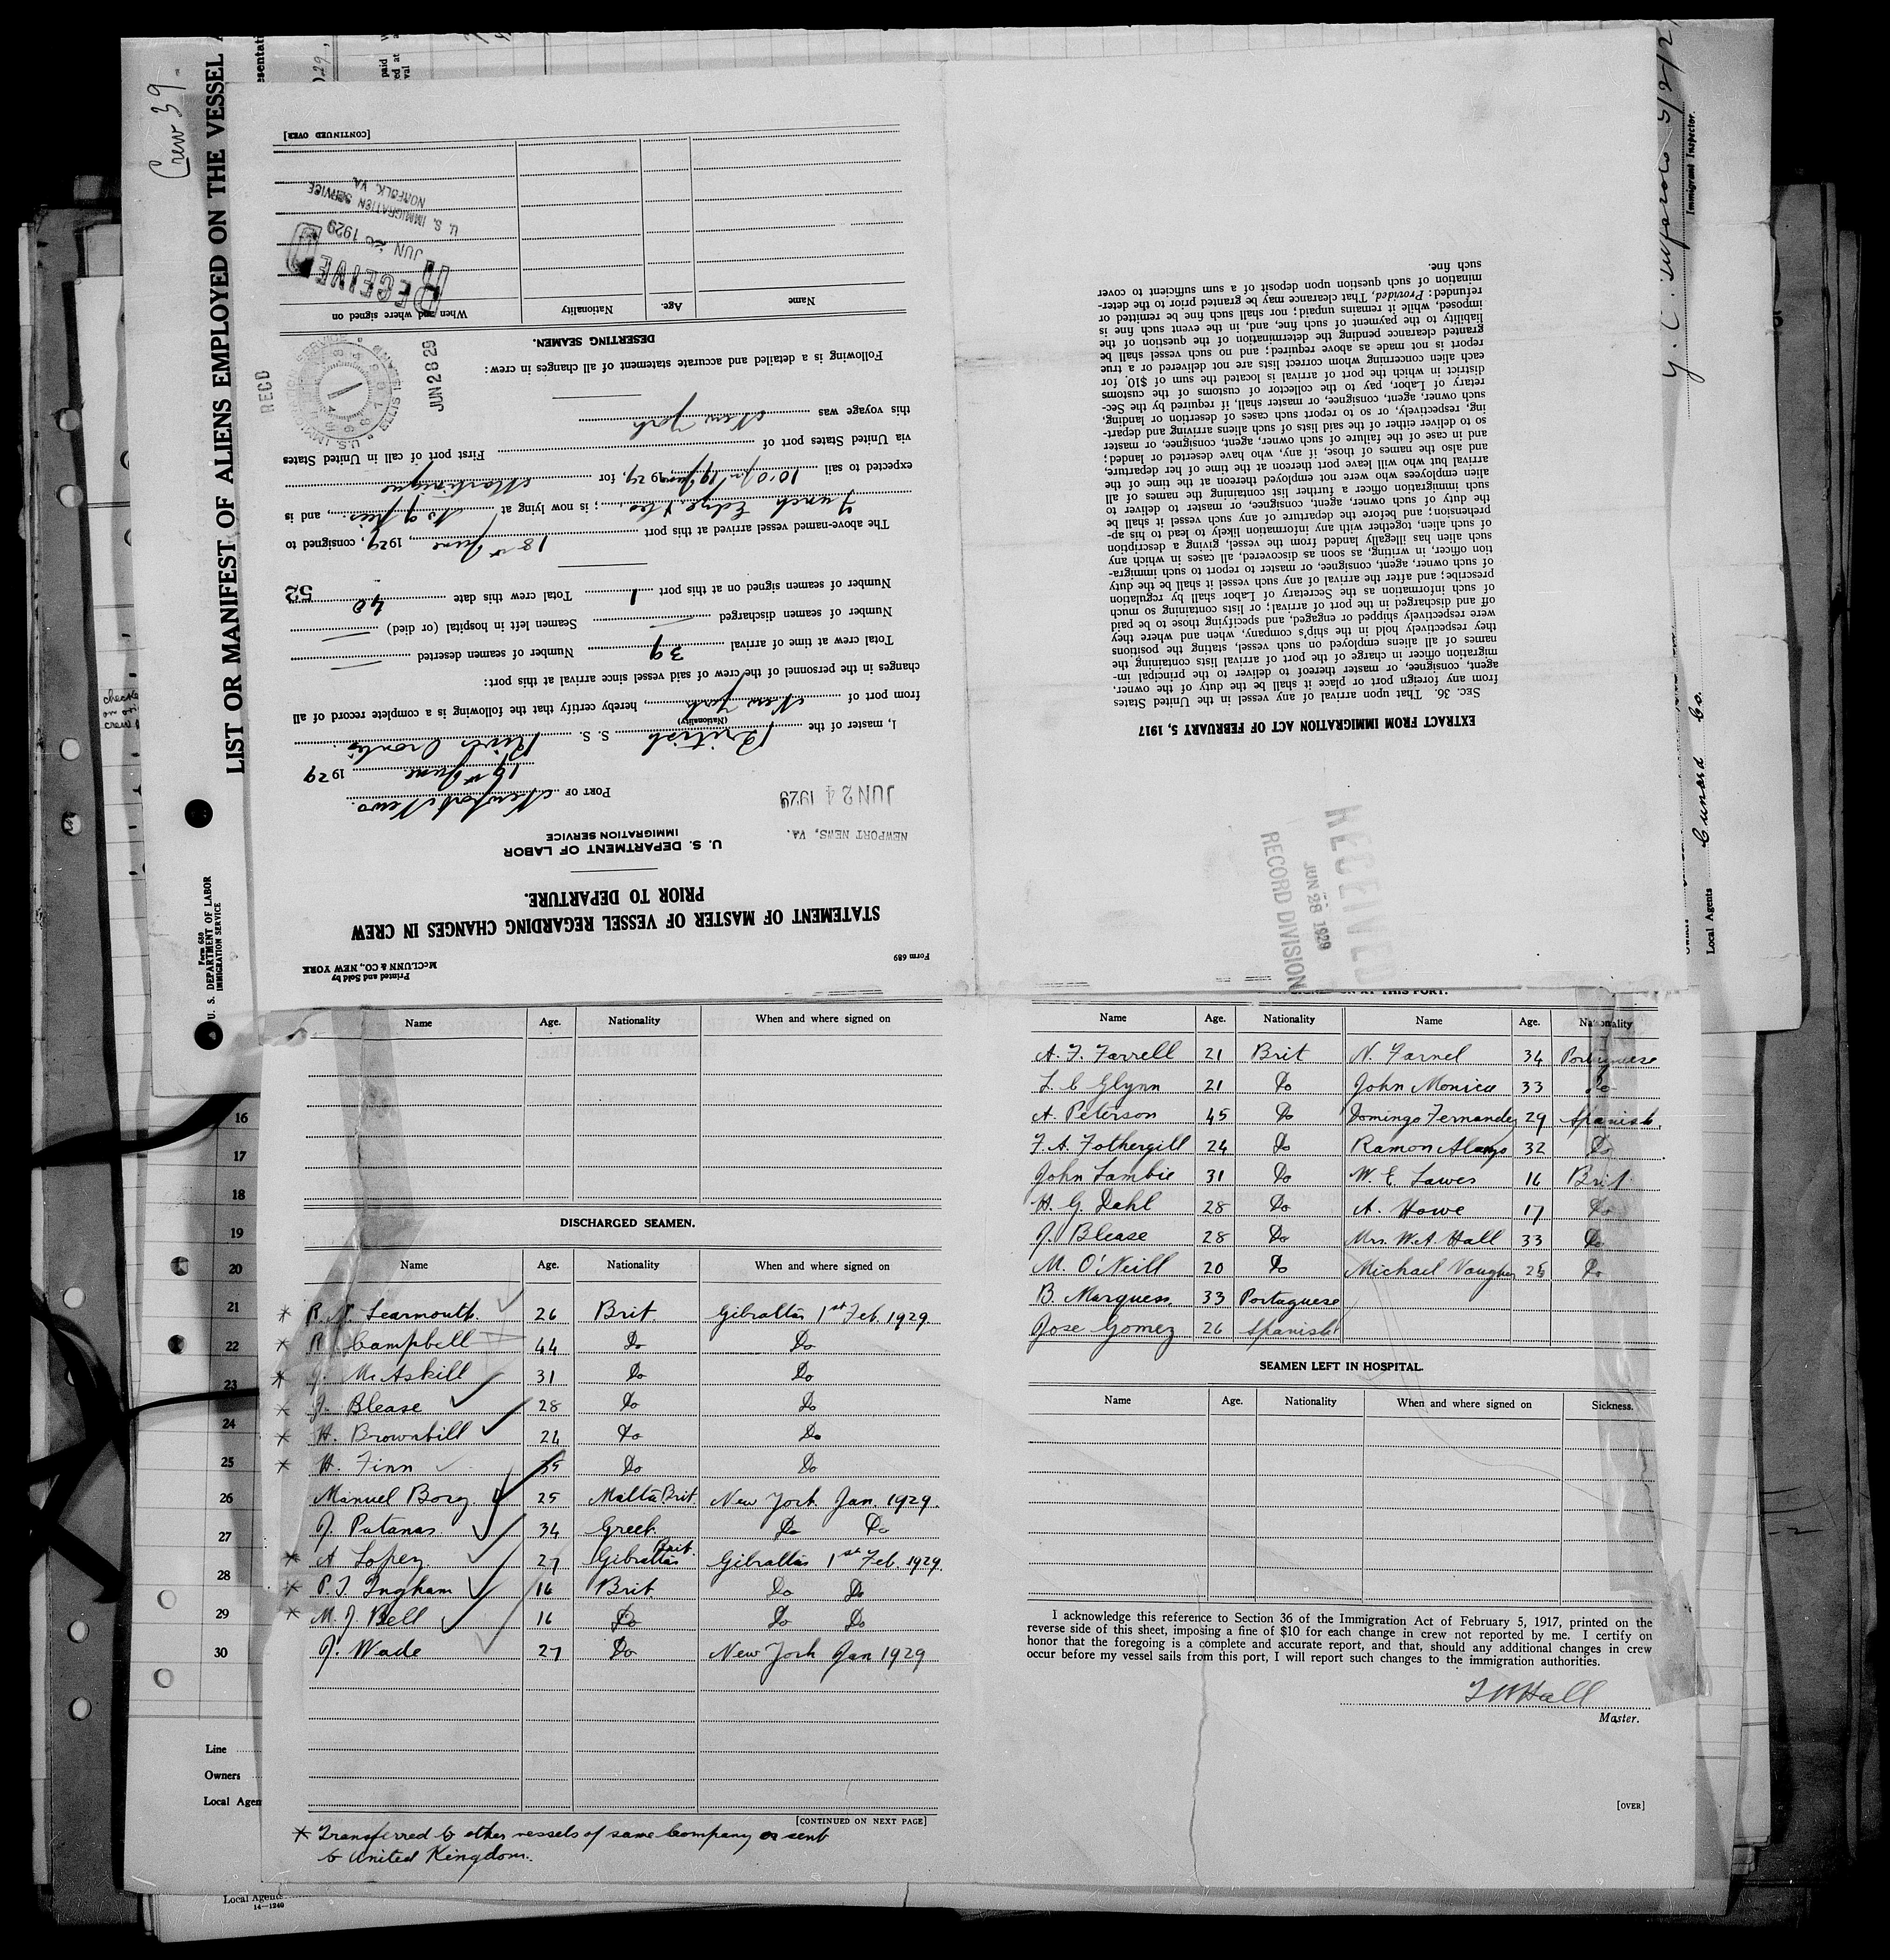 Crew 39
LIST OR MANIFEST OF ALIENS EMPLOYED ON THE VESSEL
Form 680
U. S. DEPARTMENT OF LABOR
IMMIGRATION SERVICE
Immigrant Inspector.
Local Agents Cunard Co.
Form 689
Printed and Sold by
McCLUNN & CO., NEW YORK
STATEMENT OF MASTER OF VESSEL REGARDING CHANGES IN CREW
PRIOR TO DEPARTURE.
U. S. DEPARTMENT OF LABOR
IMMIGRATION SERVICE
NEWPORT NEWS, VA.
JUN 24 1929
PORT OF Newport News.
19th June. 1929
I, master of the British S. S. River Orontes.
(Nationality)
from port of New York, hereby certify that the following is a complete record of all
changes in the personnel of the crew of said vessel since arrival at this port:
Total crew at time of arrival 39 Number of seamen deserted
Number of seamen discharged Seamen left in hospital (or died)
Number of seamen signed on at this port 1 Total crew this date 40
52
The above-named vessel arrived at this port 18th June, 1929, consigned to
Funch Edye & Co.; is now lying at and is
expected to sail 1929, for Martinique
via United States port of First port of call in United States
this voyage was New York
Following is a detailed and accurate statement of all changes in crew:
RECD
JUN 28 29
DESERTING SEAMEN.
Name Age. Nationality When and where signed on
RECEIVED
JUN 26 1929
U. S. IMMIGRATION SERVICE
NORFOLK, VA.
[CONTINUED OVER]
RECEIVED
JUN 28 1929
RECORD DIVISION
EXTRACT FROM IMMIGRATION ACT OF FEBRUARY 5, 1917
SEC. 36. That upon arrival of any vessel in the United States
from any foreign port or place it shall be the duty of the owner,
agent, consignee, or master thereof to deliver to the principal im-
migration officer in charge of the port of arrival lists containing the
names of all aliens employed on such vessel, stating the positions
they respectively hold in the ship's company, when and where they
were respectively shipped or engaged, and specifying those to be paid
off and discharged in the port of arrival; or lists containing so much
of such information as the Secretary of Labor shall by regulation
prescribe; and after the arrival of any such vessel it shall be the duty
of such owner, agent, consignee, or master to report to such immigra-
tion officer, in writing, as soon as discovered, all cases in which any
such alien has illegally landed from the vessel, giving a description
of such alien, together with any information likely to lead to his ap-
prehension; and before the departure of any such vessel it shall be
the duty of such owner, agent, consignee, or master to deliver to
such immigration officer a further list containing the names of all
alien employees who were not employed thereon at the time of the
arrival but who will leave port thereon at the time of her departure,
and also the names of those, if any, who have deserted or landed;
and in case of the failure of such owner, agent, consignee, or master
so to deliver either of the said lists of such aliens arriving and depart-
ing, respectively, or so to report such cases of desertion or landing,
such owner, agent, consignee, or master shall, if required by the Sec-
retary of Labor, pay to the collector of customs of the customs
district in which the port of arrival is located the sum of $10 for
each alien concerning whom correct lists are not delivered or a true
report is not made as above required; and no such vessel shall be
granted clearance pending the determination of the question of the
liability to the payment of such fine, and, in the event such fine is
imposed, while it remains unpaid; nor shall such fine be remitted or
refunded: Provided, That clearance may be granted prior to the deter-
mination of such question upon deposit of a sum sufficient to cover
such fine.
Name Age. Nationality When and where signed on
DISCHARGED SEAMEN.
Name Age. Nationality When and where signed on
* R. N. Learmouth. 26 Brit. Gibraltar 1st Feb. 1929
* R Campbell 44 Do Do
* J. McAskill 31 Do Do
* J. Blease 28 Do Do
* H. Brownbill 24 Do Do
* H. Finn 35 Do Do
Manuel Borg 25 Malta Brit. New York Jan. 1929.
J. Patanas 34 Greek. Do Do
* A Lopez 27 Gibraltar Brit. Gibraltar 1st Feb. 1929.
* P. J. Ingham 16 Brit. Do Do
* M. J. Bell 16 Do Do Do
J. Wade 27 Do New York Jan 1929
[CONTINUED ON NEXT PAGE]
* Transferred to other vessels of same Company or sent
to United Kingdom.
Name Age. Nationality Name Age. Nationality
A. F. Farrell 21 Brit N. Farnel 34 Portuguese
L. C Glynn 21 Do John Monica 33 Do
A. Peterson 45 Do Domingo Fernandez 29 Spanish.
F. A. Fothergill 24 Do Ramon Alonzo 32 Do
John Lambie 31 Do W. E Lawes 16 Brit.
H. G. Dahl 28 Do A. Howe 17 Do
J. Blease 28 Do Mrs. W.A. Hall 33 Do
M. O'Neill 20 Do Michael Vaughan 25 Do
B. Marquess 33 Portuguese
Jose Gomez 26 Spanish
SEAMEN LEFT IN HOSPITAL.
Name Age. Nationality When and where signed on Sickness.
I acknowledge this reference to Section 36 of the Immigration Act of February 5, 1917, printed on the
reverse side of this sheet, imposing a fine of $10 for each change in crew not reported by me. I certify on
honor that the foregoing is a complete and accurate report, and that, should any additional changes in crew
occur before my vessel sails from this port, I will report such changes to the immigration authorities.
Hall
Master.
[OVER]
16
17
18
19
20
21
22
23
24
25
26
27
28
29
30
Line
Owners
Local Agen
Local Agents
14—1240